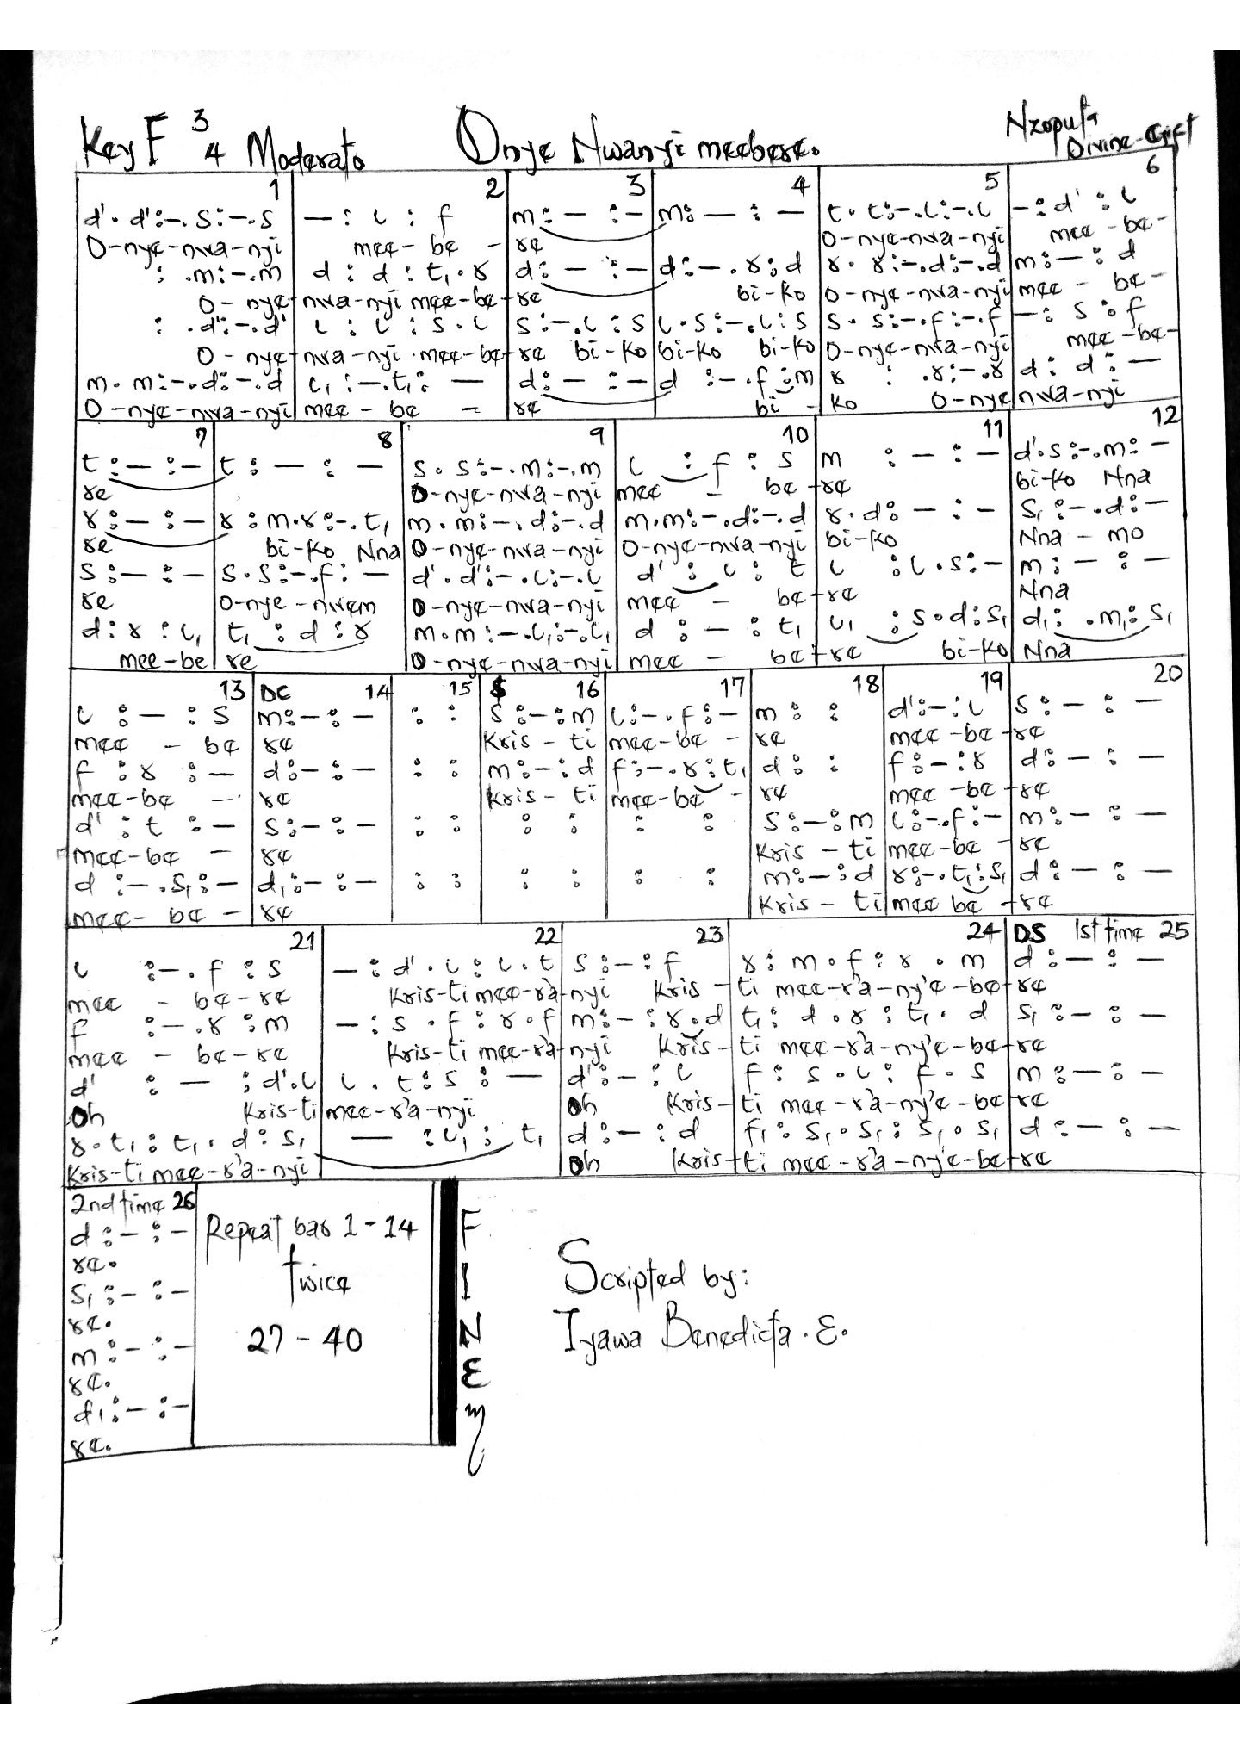 Key F 3/4 Moderato Onye Nwanyi meebere. Nzoputa Divine-Gift
1 2 3 4 5 6
d'. d':-.s:-.s | — : l : f | m:— :— | m:— : — | t. t:-.l:-.l | -:d' : l
O-nye-nwa-nyi mee-be - re O-nye-nwa-nyi mee-be-
: .m:-.m | d : d : t₁.r | d:— :— | d:-.r:d | r. r:-.d:-.d | m:— : d
O-nye-nwa-nyi mee-be-re bi-ko O-nye-nwa-nyi mee - be-
: .d':-.d' | l : l : s.l | s:-.l : s | l.s:-.l:s | s. s:-.f:-.f | —: s : f
O-nye-nwa-nyi mee-be-re bi-ko bi-ko bi-ko O-nye-nwa-nyi mee-be-
m. m:-.d:-.d | l₁ :-.t₁: — | d:— :— | d :-.f:m | r : .r:-.r | d: d: —
O-nye-nwa-nyi mee - be - re bi - ko O-nye nwa-nyi
7 8 9 10 11 12
t :— :— | t : — : — | s. s:-.m:-.m | l : f : s | m : — : — | d'.s:-.m: —
re O-nye-nwa-nyi mee - be-re bi-ko Nna
r :— :— | r :m.r:-.t₁ | m. m:-.d:-.d | m.m:-.d:-.d | r.d:— : — | s₁ :-.d:—
re bi-ko Nna O-nye-nwa-nyi O-nye-nwa-nyi bi-ko Nna - mo
s :— :— | s.s:-.f: — | d'. d':-.l:-.l | d' : l : t | l :l.s:— | m: — : —
re O-nye-nwem O-nye-nwa-nyi mee - be-re Nna
d:r :l₁ | t₁ :d :r | m.m:-.l₁:-.l₁ | d : — : t₁ | l₁ :s.d:s₁ | d₁: .m₁:s₁
mee-be re O-nye-nwa-nyi mee be-re bi-ko Nna
13 DC 14 15 $ 16 17 18 19 20
l :— : s | m:—:— | : : | s:—:m | l:-.f:— | m: : | d':-:l | s: — : —
mee - be re Kris-ti mee-be - re mee-be-re
f : r : — | d:—:— | : : | m:—:d | f:-.r:t₁ | d: : | f:—:r | d:— : —
mee-be - re Kris-ti mee-be - re mee-be-re
d' : t : — | s:—:— | : : | : : | : : | s:—:m | l:-.f:— | m:— : —
mee-be - re Kris-ti mee-be-re
d :-.s₁:— | d₁:—:— | : : | : : | : : | m:—:d | r:-.t₁:s₁ | d:— : —
mee-be-re Kris-ti mee be-re
21 22 23 24 DS 1st time 25
l :-.f : s | —:d'.l:l.t | s:—:f | r:m.f:r.m | d:— : —
mee - be-re Kris-ti mee-r'a-nyi Kris-ti mee-r'a-ny'e-be-re
f :-.r :m | —:s.f:r.f | m:-:r.d | t₁: d.r: t₁. d | s₁ :— : —
mee - be-re Kris-ti mee-r'a-nyi Kris-ti mee-r'a-ny'e-be-re
d' : — :d'.l | l . t:s : — | d':—: l | f: s.l: f.s | m:—: —
Oh Kris-ti mee-r'a-nyi Oh Kris-ti mee-r'a-ny'e-be-re
r.t₁ : t₁. d : s₁ | — :l₁: t₁ | d:—: d | f₁: s₁.s₁: s₁. s₁ | d:— : —
Kris-ti mee-r'a-nyi Oh Kris-ti mee-r'a-ny'e-be-re
2nd time 26
d:— :—
re.
s₁ :— :—
re.
m:— :—
re.
d₁:— :—
re.
Repeat bar 1-14
twice
27 - 40
FINE
Scripted by:
Iyawa Benedicta .E.